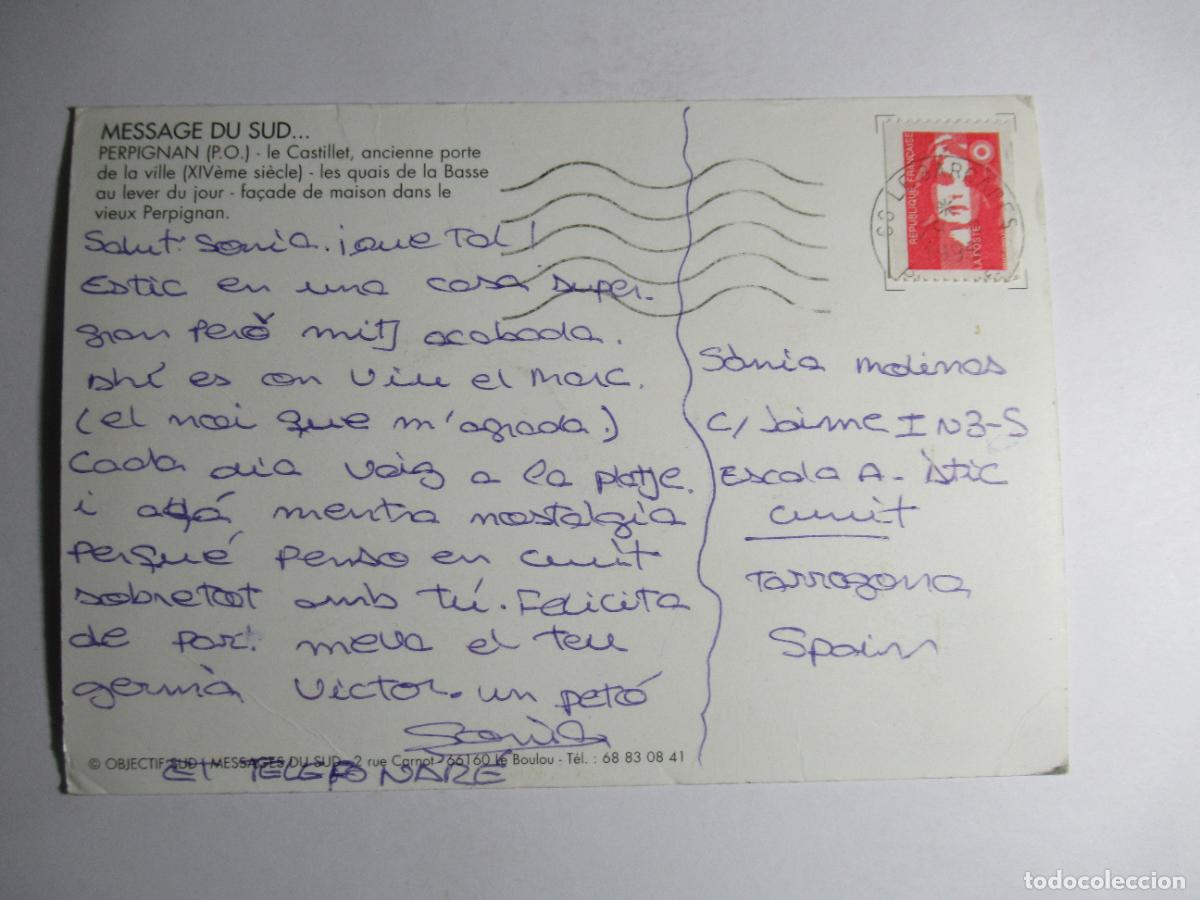 MESSAGE DU SUD...
PERPIGNAN (P.O.) - le Castillet, ancienne porte
de la ville (XIVème siècle) - les quais de la Basse
au lever du jour - façade de maison dans le
vieux Perpignan.
Salut Sonia. ¡que Tal!
Estic en una casa super-
gran però mitj acabada.
Ahí es on viu el Marc.
(el noi que m'agrada.)
Cada dia vaig a la platje.
i agá mentra nostalgia
Perqué penso en cunit
sobretot amb tú. Felicita
de part meva el teu
germà Victor. un petó
Sonia
ET TELEFONARÉ
© OBJECTIF SUD - MESSAGES DU SUD - 2 rue Carnot - 66160 Le Boulou - Tél. : 68 83 08 41
REPUBLIQUE FRANÇAISE
LA POSTE
Sònia Molinas
C/ Jaime I N3-5
Escala A- Àtic
cunit
Tarragona
Spain
todocoleccion